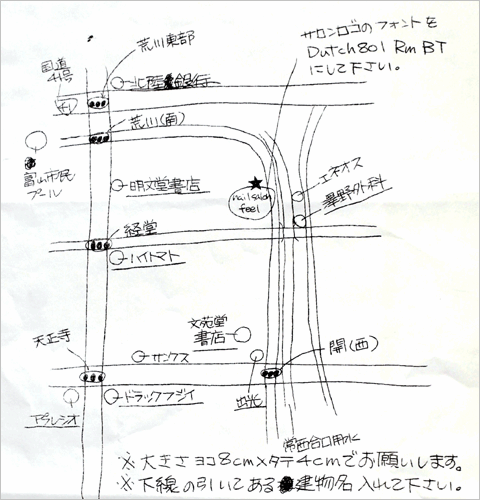 サロンロゴのフォントを
Dutch801 Rm BT
にして下さい。
荒川東部
国道
41号
41
北陸銀行
荒川(南)
富山市民
プール
明文堂書店
nail salon
feel
エネオス
経堂
ハイトマト
文苑堂
書店
天正寺
サンクス
開(西)
アプレシオ
ドラッグフジイ
出光
常西合口用水
※大きさヨコ8cm×タテ4cmでお願いします。
※下線の引いてある建物名入れて下さい。